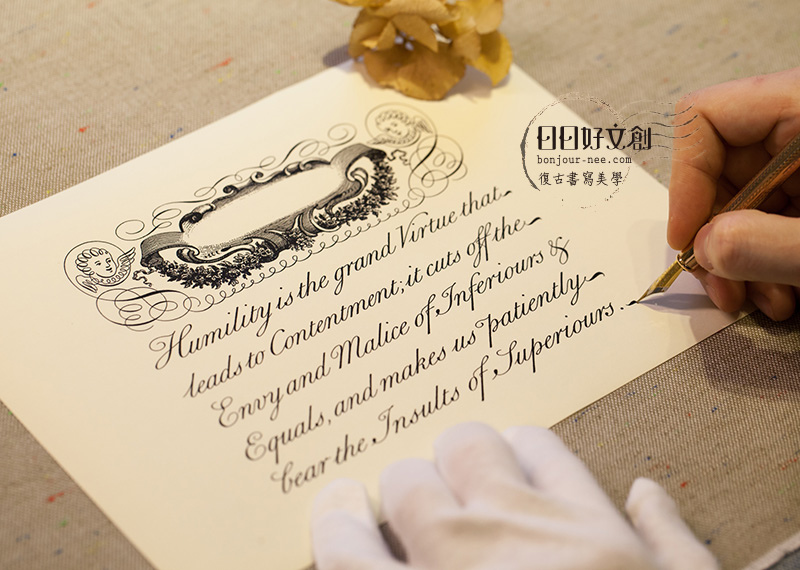 日日好文創
bonjour-nee.com
復古書寫美學
Humility is the grand Virtue that
leads to Contentment; it cuts off the
Envy and Malice of Inferiours &
Equals, and makes us patiently
bear the Insults of Superiours.